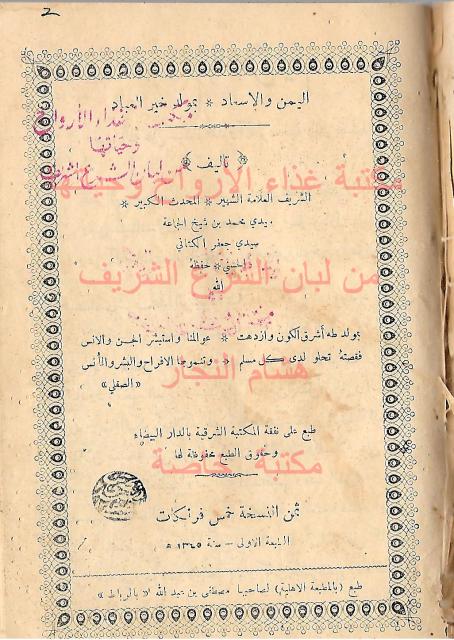 2
اليمن والإسعاد * بمولد خير العباد
غذاء الأرواح
وحياتها
من لبان الشرع الشريف
﴿ تأليف ﴾
مكتبة غذاء الأرواح وحياتها
الشريف العلامة الشهير * المحدث الكبير *
سيدي محمد بن شيخ الجماعة
سيدي جعفر الكتاني
الحسني * حفظه
الله
من لبان الشرع الشريف
بمولد طه أشرق الكون وازدهت * عوالمنا واستبشر الجن والانس
فقصته تحلو لدى كل مسلم * وتنمو بها الافراح والبشر والأنس
« الصقلي »
هشام النجار
طبع على نفقة المكتبة الشرقية بالدار البيضاء
وحقوق الطبع محفوظة لها
مكتبة خاصة
ثمن النسخة خمس فرنكات
الطبعة الاولى – سنة ١٣٤٥ ه
طبع (بالمطبعة الاهلية) لصاحبها مصطفى بن عبد الله « بالرباط »